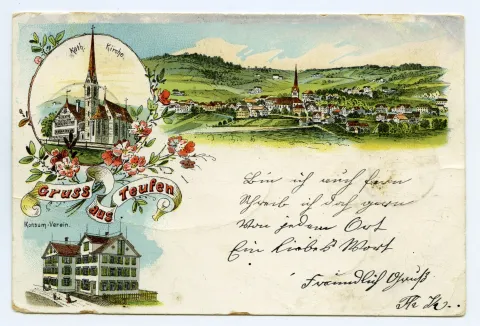 Kath. Kirche.
Gruss aus Teufen
Konsum-Verein.
Bin ich auch fern
Schreib ich doch gern
Von jedem Ort
Ein liebes Wort
Freundlich Gruß